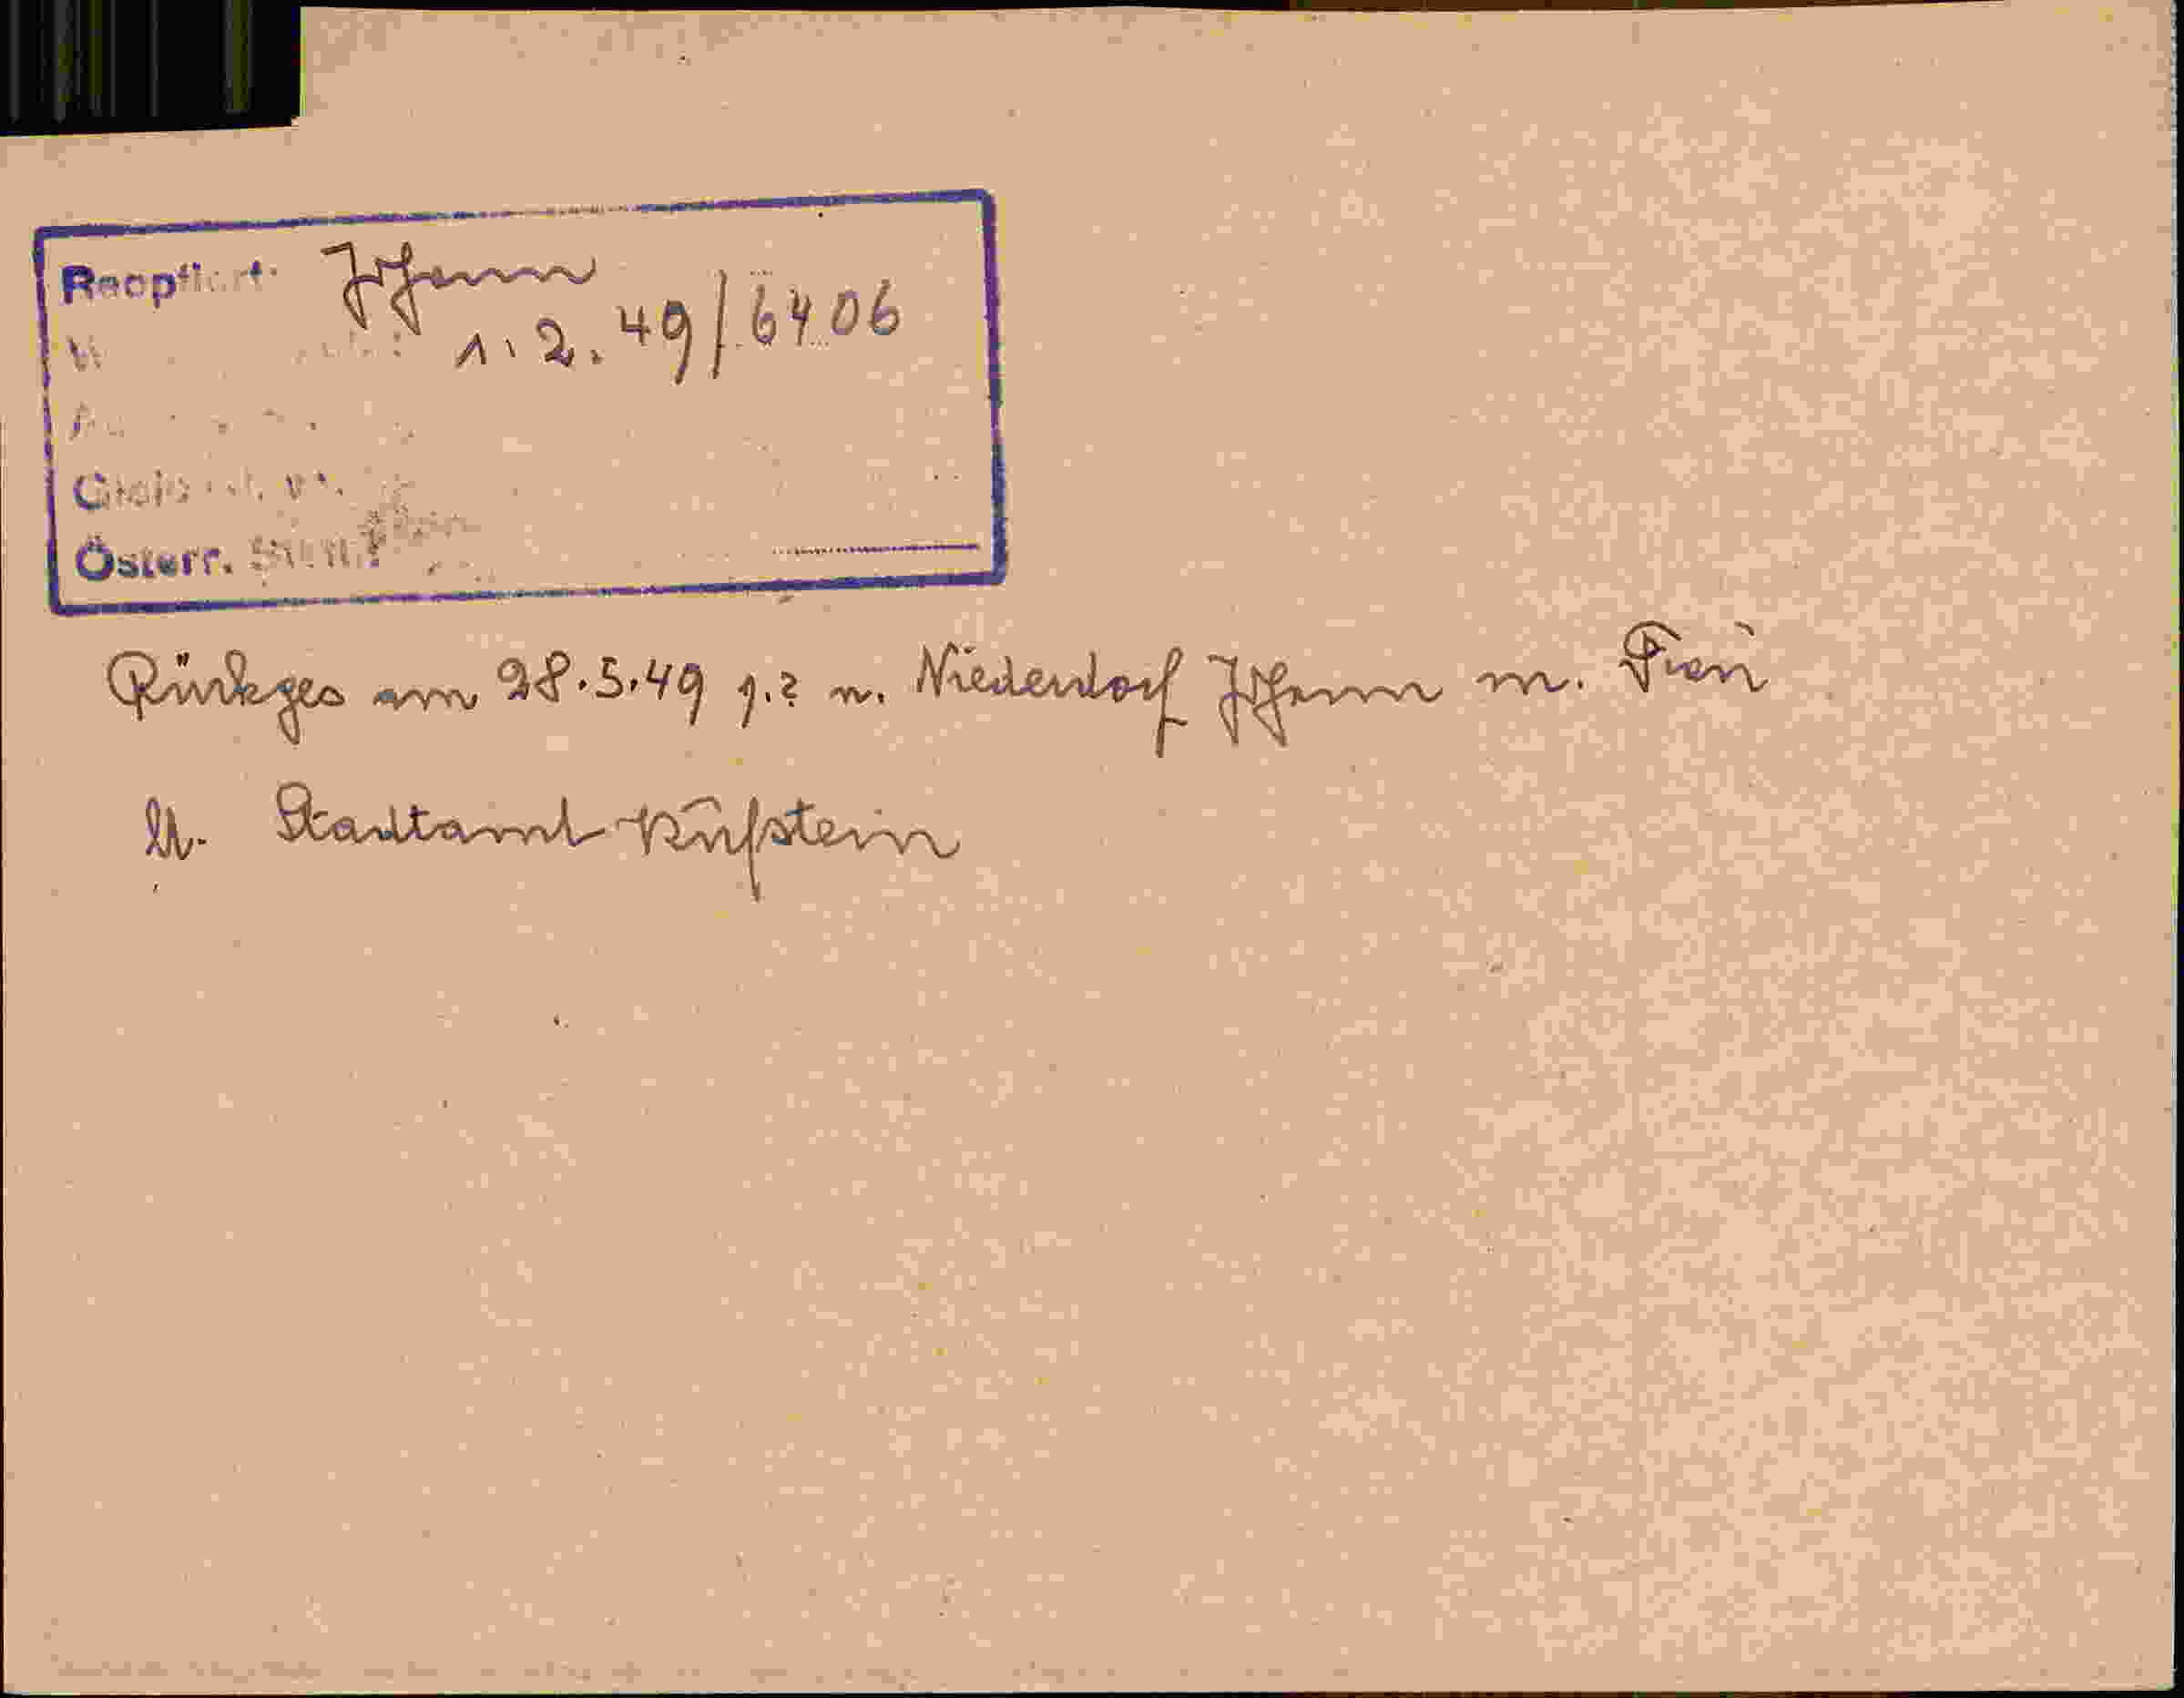 Reoptiert: Johann
1.2.49/6406
Österr.
Rückges am 28.5.49 g.? n. Niederdorf Johann m. Frau
lt. Stadtamt Kufstein